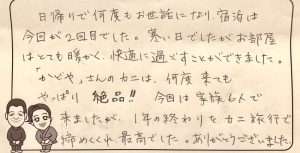 日帰りで何度もお世話になり、宿泊は
今回が2回目でした。寒い日でしたがお部屋
はとても暖かく、快適に過ごすことができました。
「かどや」さんのカニは、何度来ても
やっぱり 絶品!! 今回は家族6人で
来ましたが、1年の終わりをカニ旅行で
締めくくれ、最高でした。ありがとうございました